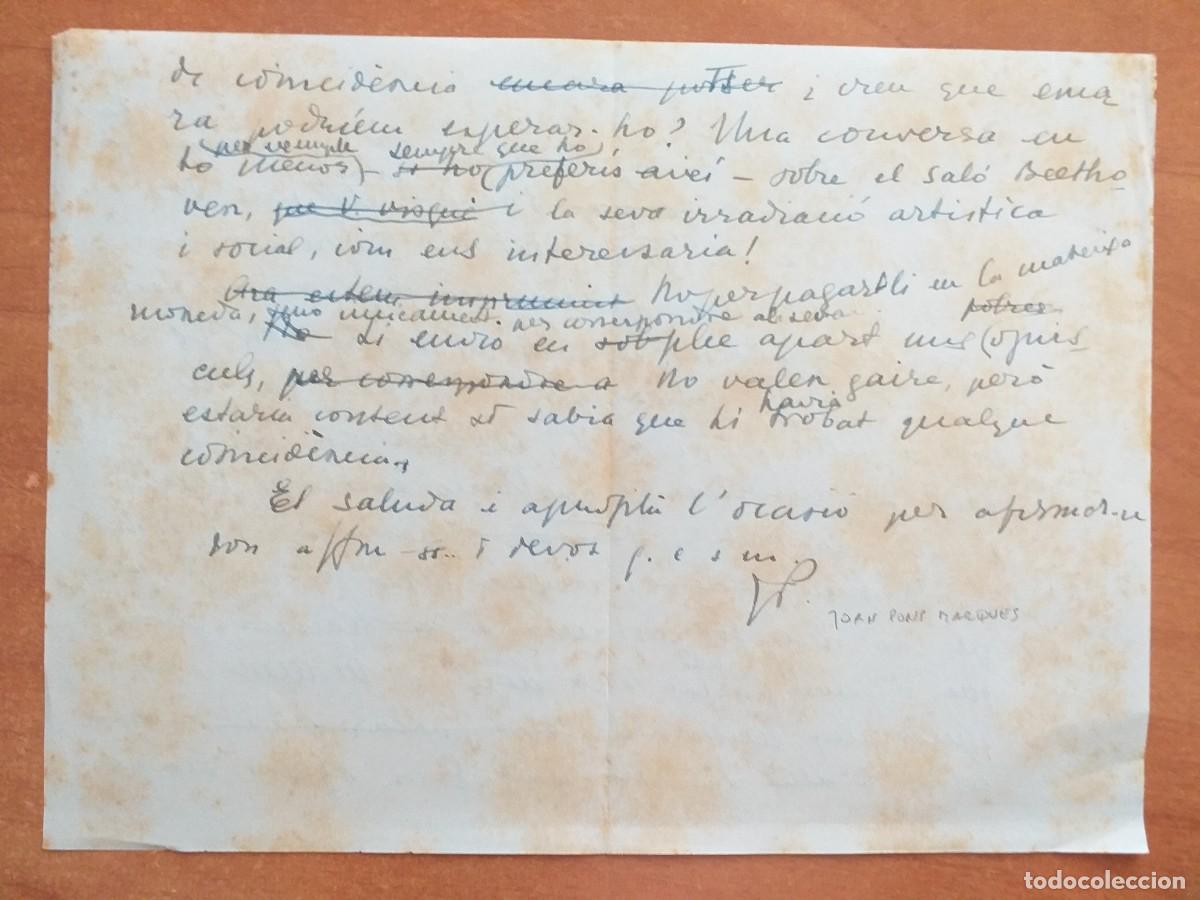 de coincidència encara potser i creu que enca
ra podriem esperar-ho? Una conversa en
per exemple sempre que ho
to menos) - si ho (preferís així - sobre el saló Beetho
ven, que V. visqué i la seva irradiació artistica
i social, com ens interessaria!
Ara estem imprimint No per pagarli en la mateixa
moneda, sino unicament per correspondre a la seva pobres
No li envio en sobre plec apart uns (opus
culs, per correspondre a No valen gaire, però
estaria content si sabia que hi havia trobat qualque
coincidència.
El saluda i aprofita l'ocasió per afirmar-se
son affm ss. i devot q. e s m.
JP.
JOAN PONS MARQUES
todocoleccion